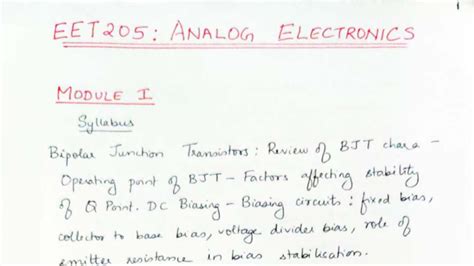 EET205: ANALOG ELECTRONICS
MODULE I
Syllabus
Bipolar Junction Transistors: Review of BJT chara -
Operating point of BJT - Factors affecting stability
of Q Point. DC Biasing - Biasing circuits: fixed bias,
collector to base bias, voltage divider bias, role of
emitter resistance in bias stabilisation.